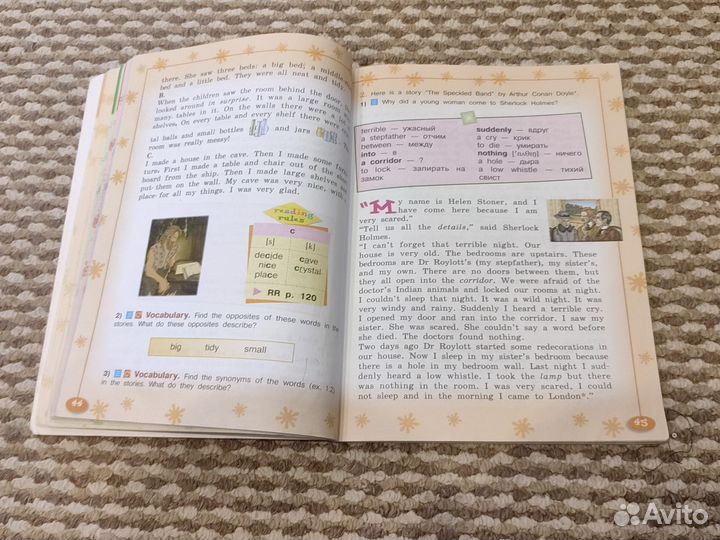 there. She saw three beds: a big bed; a middle
bed and a little bed. They were all neat and tidy
B.
When the children saw the room behind the door, the
looked around in surprise. It was a large room
many tables in it. On the walls there were a lo
shelves. On every table and every shelf there were
(a) balls and small bottles and jars
room was really messy!
C.
I made a house in the cave. Then I made some
ture. First I made a table and chair out of the
board from the ship. Then I made large shelves
put them on the wall. My cave was very nice, with
place for all my things. I was very glad.
reading
rules
c
[s] [k]
decide cave
nice crystal
place
RR p. 120
2) Vocabulary. Find the opposites of these words in the
stories. What do these opposites describe?
big tidy small
3) Vocabulary. Find the synonyms of the words (ex. 1.2)
in the stories. What do they describe?
44
2. Here is a story "The Speckled Band" by Arthur Conan Doyle*.
1) Why did a young woman come to Sherlock Holmes?
terrible — ужасный
a stepfather — отчим
between — между
into — в
a corridor — ?
to lock — запирать на
замок
suddenly — вдруг
a cry — крик
to die — умирать
nothing ['nʌθɪŋ] — ничего
a hole — дыра
a low whistle — тихий
свист
"My name is Helen Stoner, and I
have come here because I am
very scared."
"Tell us all the details," said Sherlock
Holmes.
"I can't forget that terrible night. Our
house is very old. The bedrooms are upstairs. These
bedrooms are Dr Roylott's (my stepfather), my sister's,
and my own. There are no doors between them, but
they all open into the corridor. We were afraid of the
doctor's Indian animals and locked our rooms at night.
I couldn't sleep that night. It was a wild night. It was
very windy and rainy. Suddenly I heard a terrible cry.
I opened my door and ran into the corridor. I saw my
sister. She was scared. She couldn't say a word before
she died. The doctors found nothing.
Two days ago Dr Roylott started some redecorations in
our house. Now I sleep in my sister's bedroom because
there is a hole in my bedroom wall. Last night I sud-
denly heard a low whistle. I took the lamp but there
was nothing in the room. I was very scared. I could
not sleep and in the morning I came to London*."
45
Avito